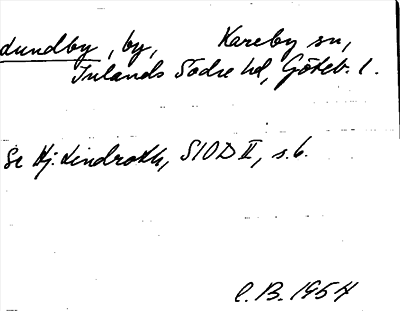 Lundby, by, Kareby sn,
Inlands Södre hd, Göteb. l.
Se Hj. Lindroth, SIOD II, s. 6.
C.B. 1954